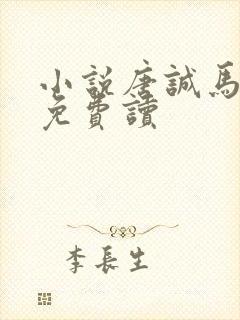 小說唐誠馬
免費讀
李長生